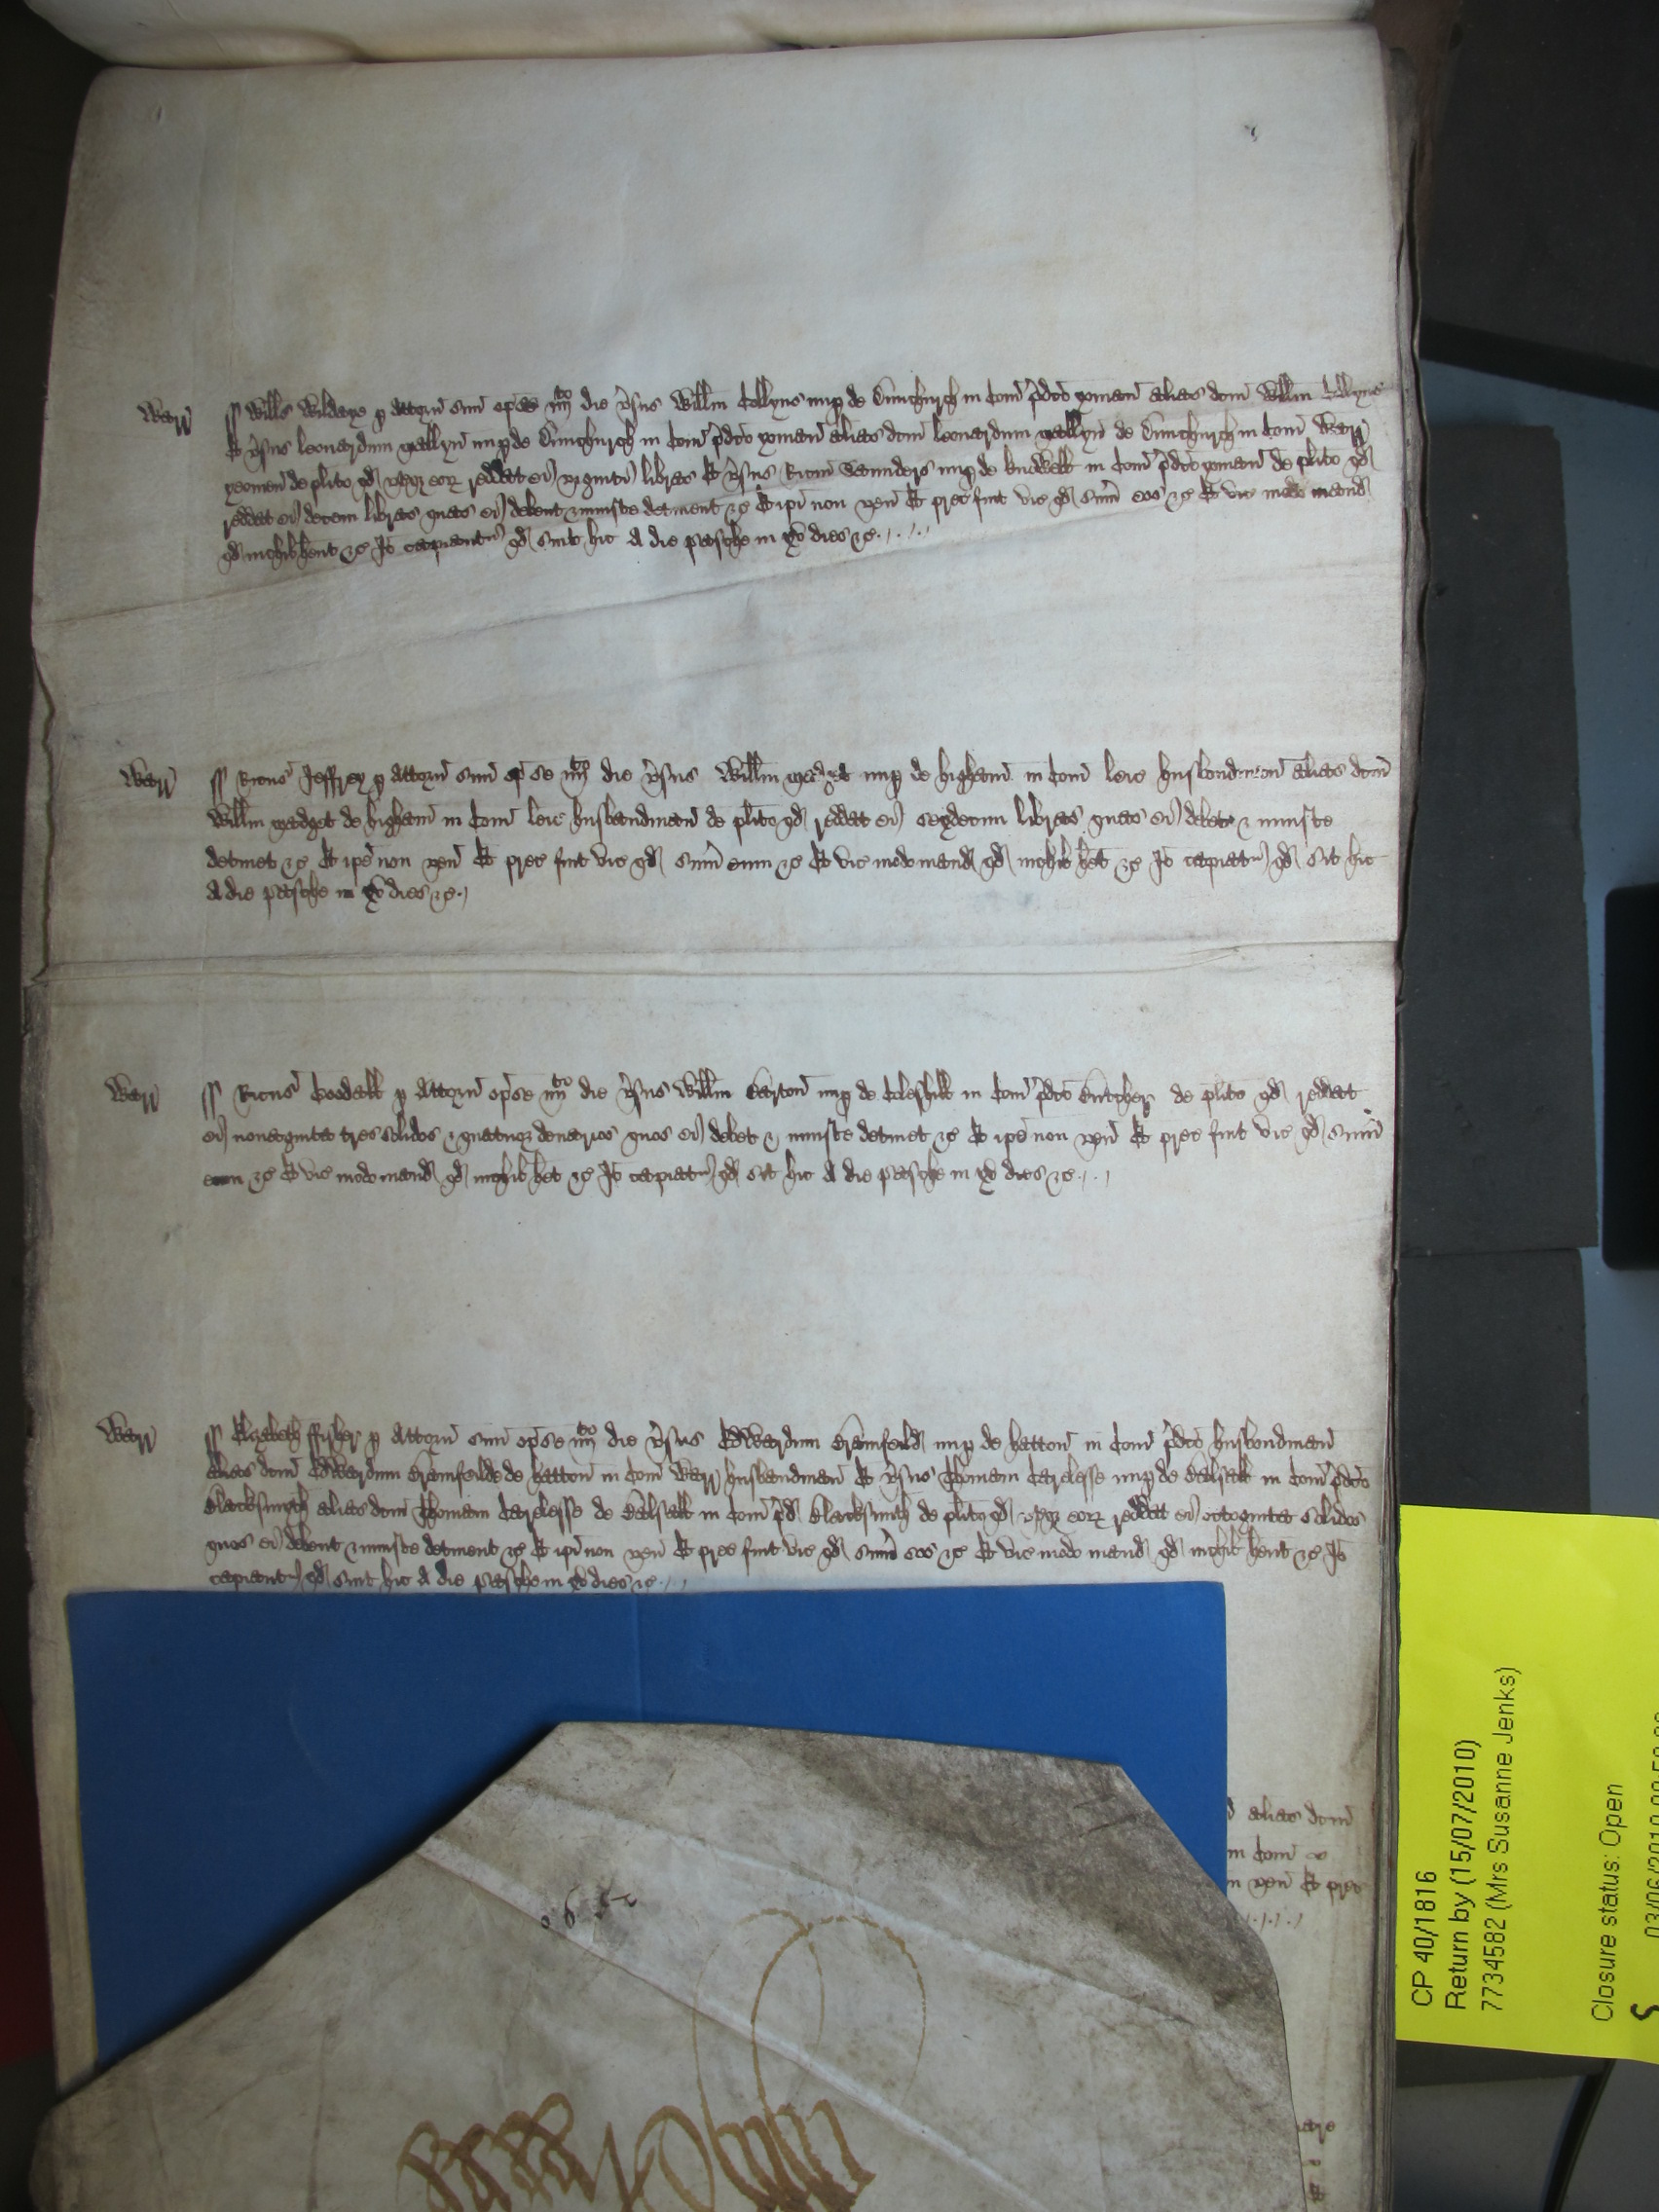 Warr ss Wills Wildaye p Attorn suu op se iiijto die vsus Willm Collyns nup de Dunchurch in Com pdco yoman alias dcm Willm Collyns
Et vsus leonardum mallyn nup de Dunchurch in Com pdco yoman alias dcm leonardum mallyn de Dunchurch in Com Warr
yeomen de plito qd utqz eorz reddat ei viginti libras Et vsus Ricm Saunders nup de knowell in Com pdco yoman de plito qd
reddat ei decem libras quas ei debent & iniuste detinent &c Et ipi non ven Et prec fuit vic qd sum eos &c Et vic modo mand
qd nichil hent &c Io capiantr qd sint hic A die pasche in xv dies &c
Warr ss Ricus Jeffrey p Attorn suu op se iiijto die vsus Willm madget nup de higham in Com leic husbondman alias dcm
Willm madget de higham in Com leic husbandman de plito qd reddat ei sexdecim libras quas ei debet & iniuste
detinet &c Et ipe non ven Et prec fuit vic qd sum eum &c Et vic modo mand qd nichil het &c Io capiatr qd sit hic
A die pasche in xv dies &c
Warr ss Ricus Goodall p Attorn op se iiijto die vsus Willm Barton nup de Coleshill in Com pdco Butcher de plito qd reddat
ei nonaginta tres solidos & quatuor denarios quos ei debet & iniuste detinet &c Et ipe non ven Et prec fuit vic qd sum
eum &c Et vic modo mand qd nichil het &c Io capiatr qd sit hic A die pasche in xv dies &c
Warr ss Elizabeth ffisher p Attorn suu op se iiijto die vsus Edwardum Bramfeild nup de hatton in Com pdco husbondman
alias dcm Edwardum Bramfeilde de hatton in Com Warr husbandman Et vsus Thomam Carelesse nup de Balsall in Com pdco
Blacksmyth alias dcm Thomam Carelesse de Balsall in Com pd Blacksmith de plito qd utqz eorz reddat ei octoginta solidos
quos ei debent & iniuste detinent &c Et ipi non ven Et prec fuit vic qd sum eos &c Et vic modo mand qd nichil hent &c Io
capiantr qd sint hic A die pasche in xv dies &c
alias dcm
in Com
ven Et prec
CP 40/1816
Return by (15/07/2010)
7734582 (Mrs Susanne Jenks)
Closure status: Open